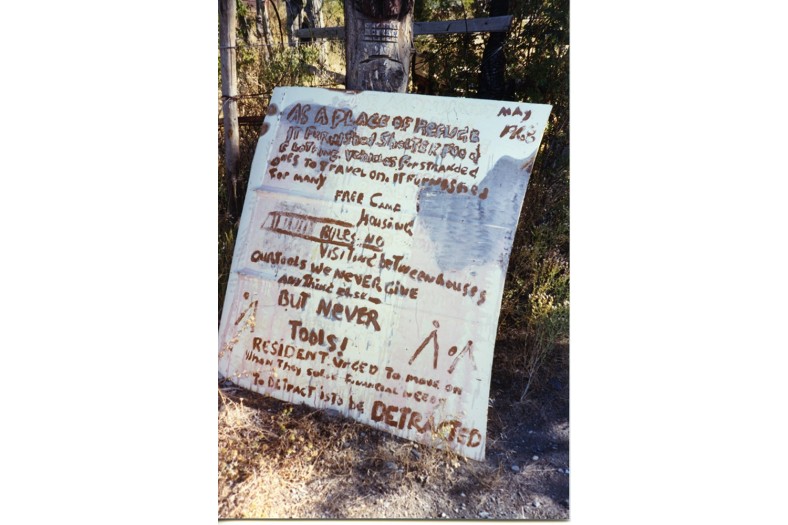 MAY
AS A PLACE OF REFUGE
IT FURNIShEd ShELTER FOOd
CLOTHING VEhiCLES FOR STRANDED
ONES TO TRAVEL ON. IT FURNISHED
FOR MANY
FREE CAMP
HOUSING
RULES. NO
VISITING bETWEEN hOUSES
OUR TOOLS WE NEVER GIVE
ANYThING ELSE
BUT NEVER
TOOLS!
RESIDENT URGED TO MOVE ON
WhEN ThEY SOLVE FINANCIAL NEEDS
TO DETRACT IS TO BE DETRACTED